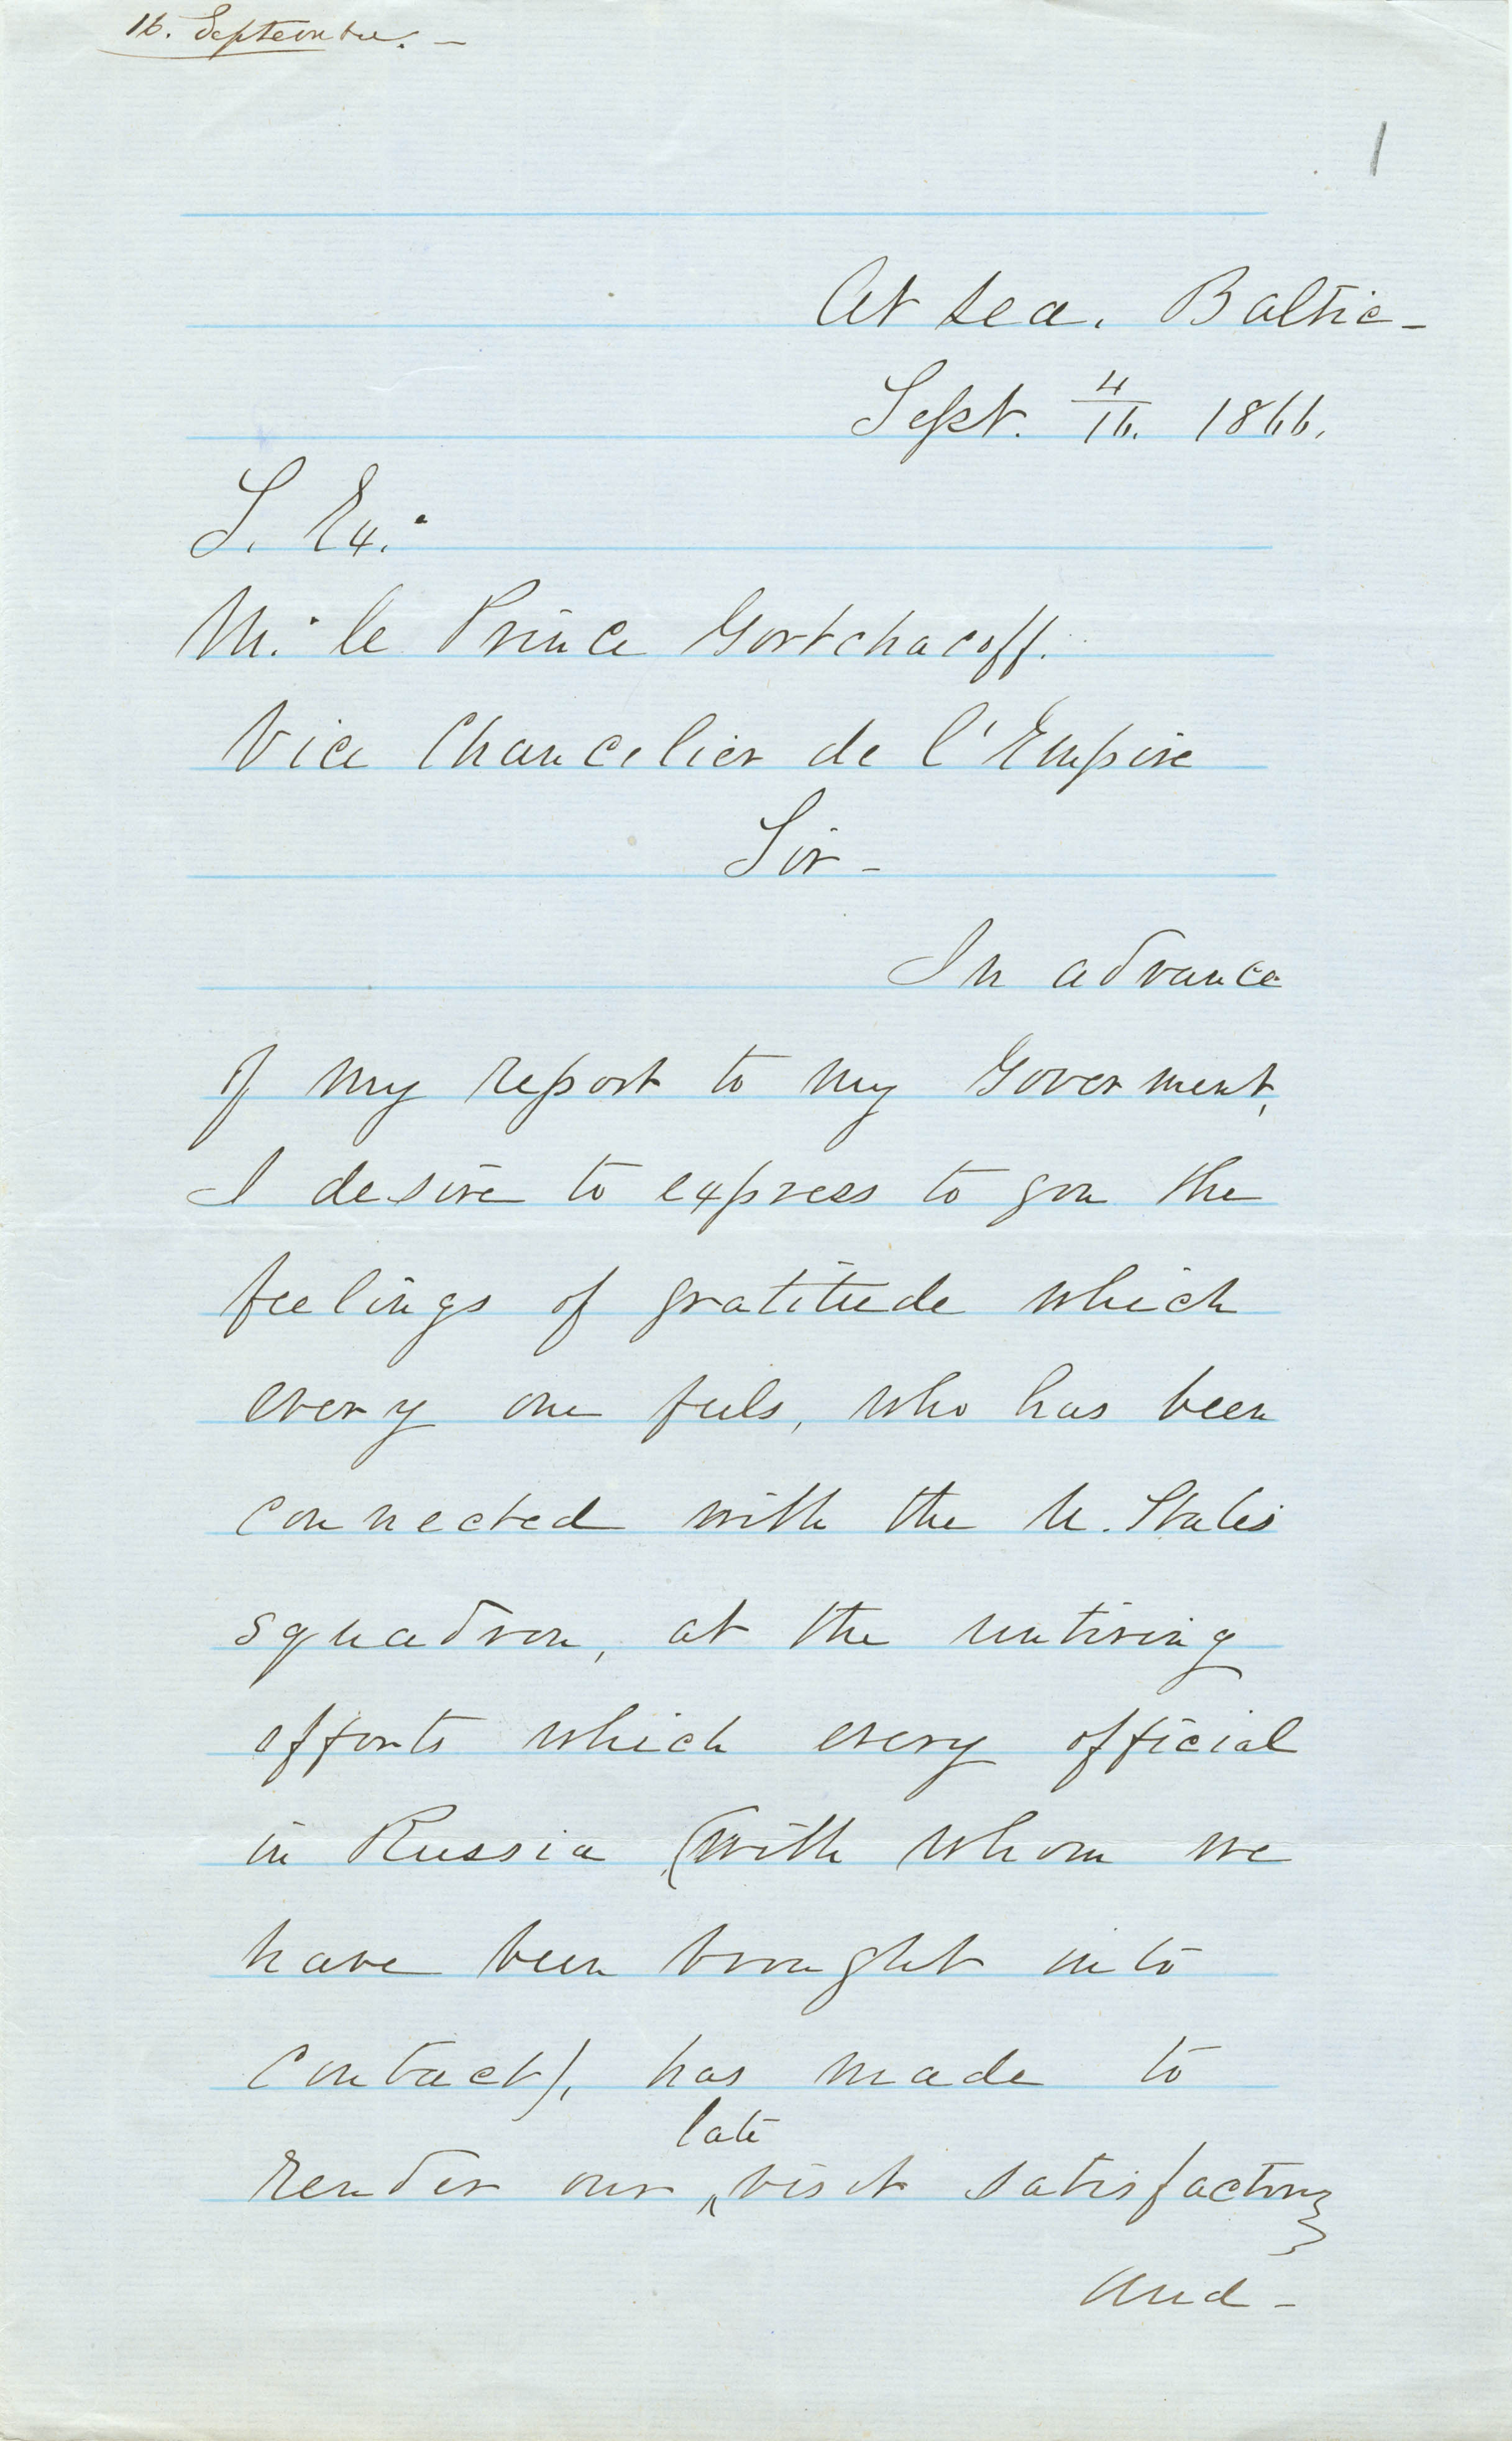 16. Septembre. —
1
At sea. Baltic –
Sept. 4/16. 1866.
S. Ex.
M. le Prince Gortchacoff.
Vice Chancelier de l'Empire
Sir –
In advance
of my report to my Goverment,
I desire to express to you the
feelings of gratitude which
every one feels, who has been
connected with the U. States
squadron, at the untiring
efforts which every official
in Russia (with whom we
have been brought into
contact), has made to
late
render our ‸ visit satisfactory
and –